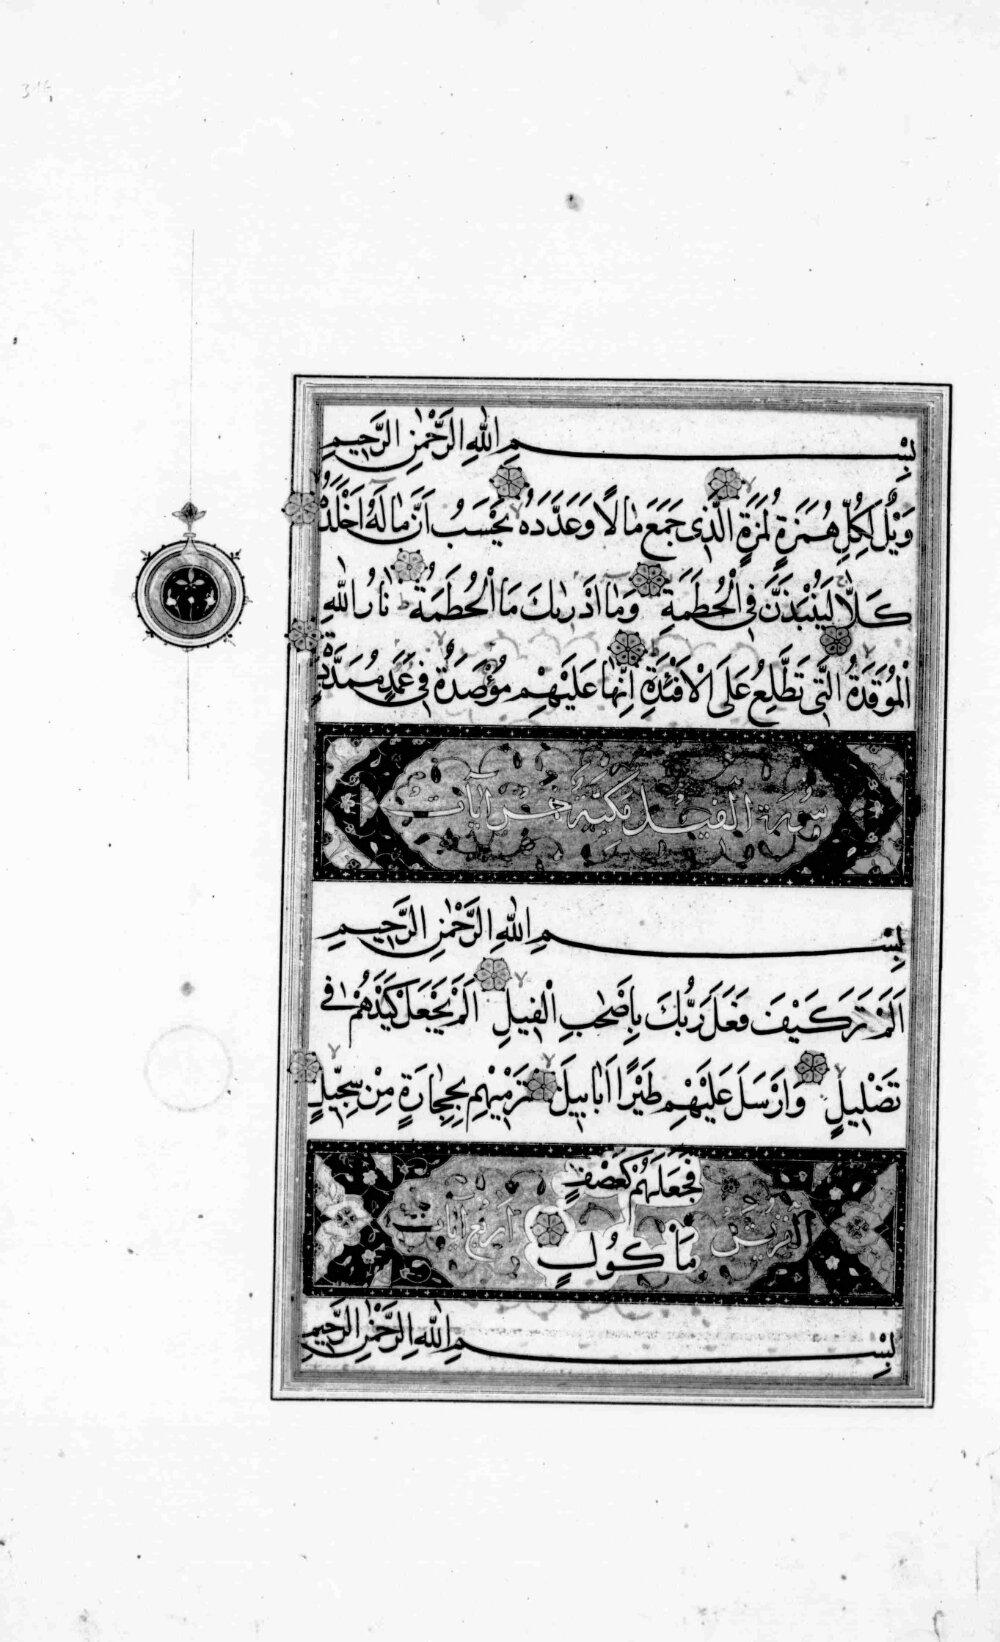 بِسْمِ اللهِ الرَّحْمٰنِ الرَّحِيمِ
وَيْلٌ لِكُلِّ هُمَزَةٍ لُمَزَةٍ الَّذِى جَمَعَ مَالًا وَعَدَّدَهُ يَحْسَبُ اَنَّ مَالَهُ اَخْلَدَهُ
كَلَّا لَيُنْبَذَنَّ فِى الْحُطَمَةِ وَمَا اَدْرٰىكَ مَا الْحُطَمَةُ نَارُ اللهِ
الْمُوقَدَةُ الَّتِى تَطَّلِعُ عَلَى الْاَفْئِدَةِ اِنَّهَا عَلَيْهِمْ مُؤْصَدَةٌ فِى عَمَدٍ مُمَدَّدَةٍ
سورة الفيل مكية خمس آيات
بِسْمِ اللهِ الرَّحْمٰنِ الرَّحِيمِ
اَلَمْ تَرَ كَيْفَ فَعَلَ رَبُّكَ بِاَصْحٰبِ الْفِيلِ اَلَمْ يَجْعَلْ كَيْدَهُمْ فِى
تَضْلِيلٍ وَاَرْسَلَ عَلَيْهِمْ طَيْرًا اَبَابِيلَ تَرْمِيْهِمْ بِحِجَارَةٍ مِنْ سِجِّيلٍ
فَجَعَلَهُمْ كَعَصْفٍ
مَاْكُولٍ
القريش اربع آيات
بِسْمِ اللهِ الرَّحْمٰنِ الرَّحِيمِ